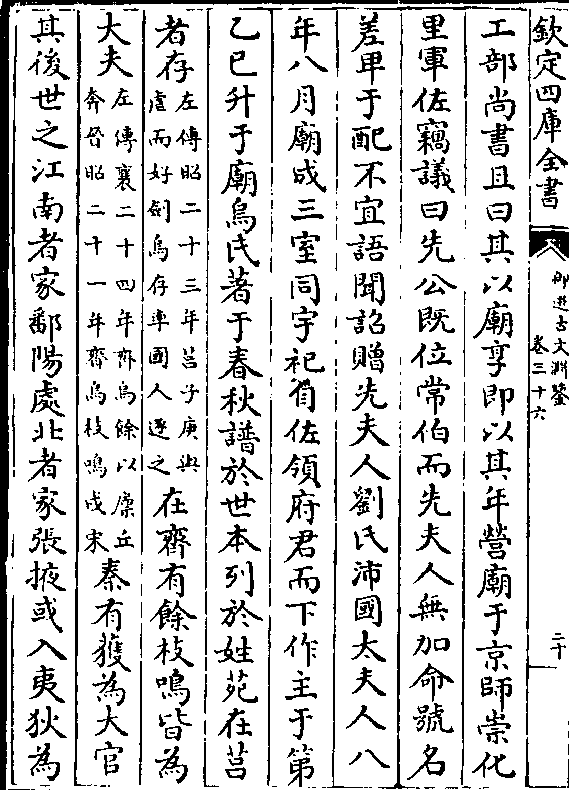 欽定四庫全書
御選古文淵鑒
卷三十六
二十
工部尚書且曰其以廟享即以其年營廟于京師崇化
里軍佐竊議曰先公既位常伯而先夫人無加命號名
差卑于配不宜語聞詔贈先夫人劉氏沛國太夫人八
年八月廟成三室同宇祀自佐領府君而下作主于第
乙巳升于廟烏氏著于春秋譜於世本列於姓苑在莒
者存
左傳昭二十三年莒子庚輿
虐而好劍烏存率國人逐之
在齊有餘枝鳴皆為
大夫
左傳襄二十四年齊烏餘以廩丘
奔晉昭二十一年齊烏枝鳴戍宋
秦有獲為大官
其後世之江南者家鄱陽處北者家張掖或入夷狄為